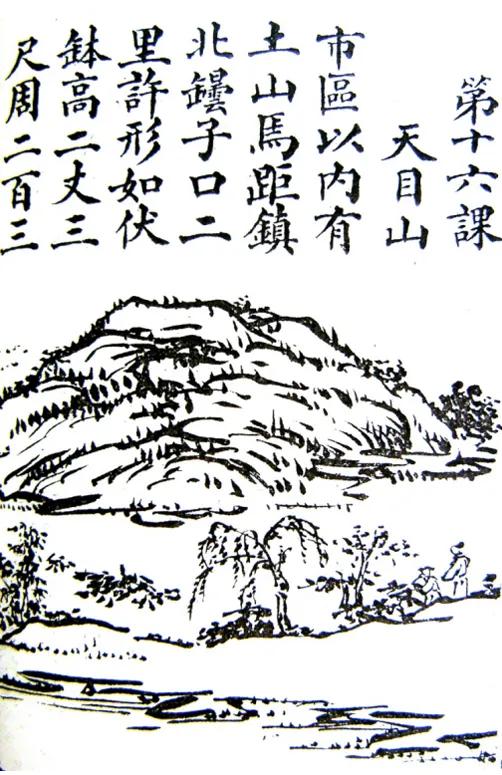 第十六課
天目山
市區以內有
土山馬距鎮
北罍子口二
里許形如伏
鉢高二丈三
尺周二百三